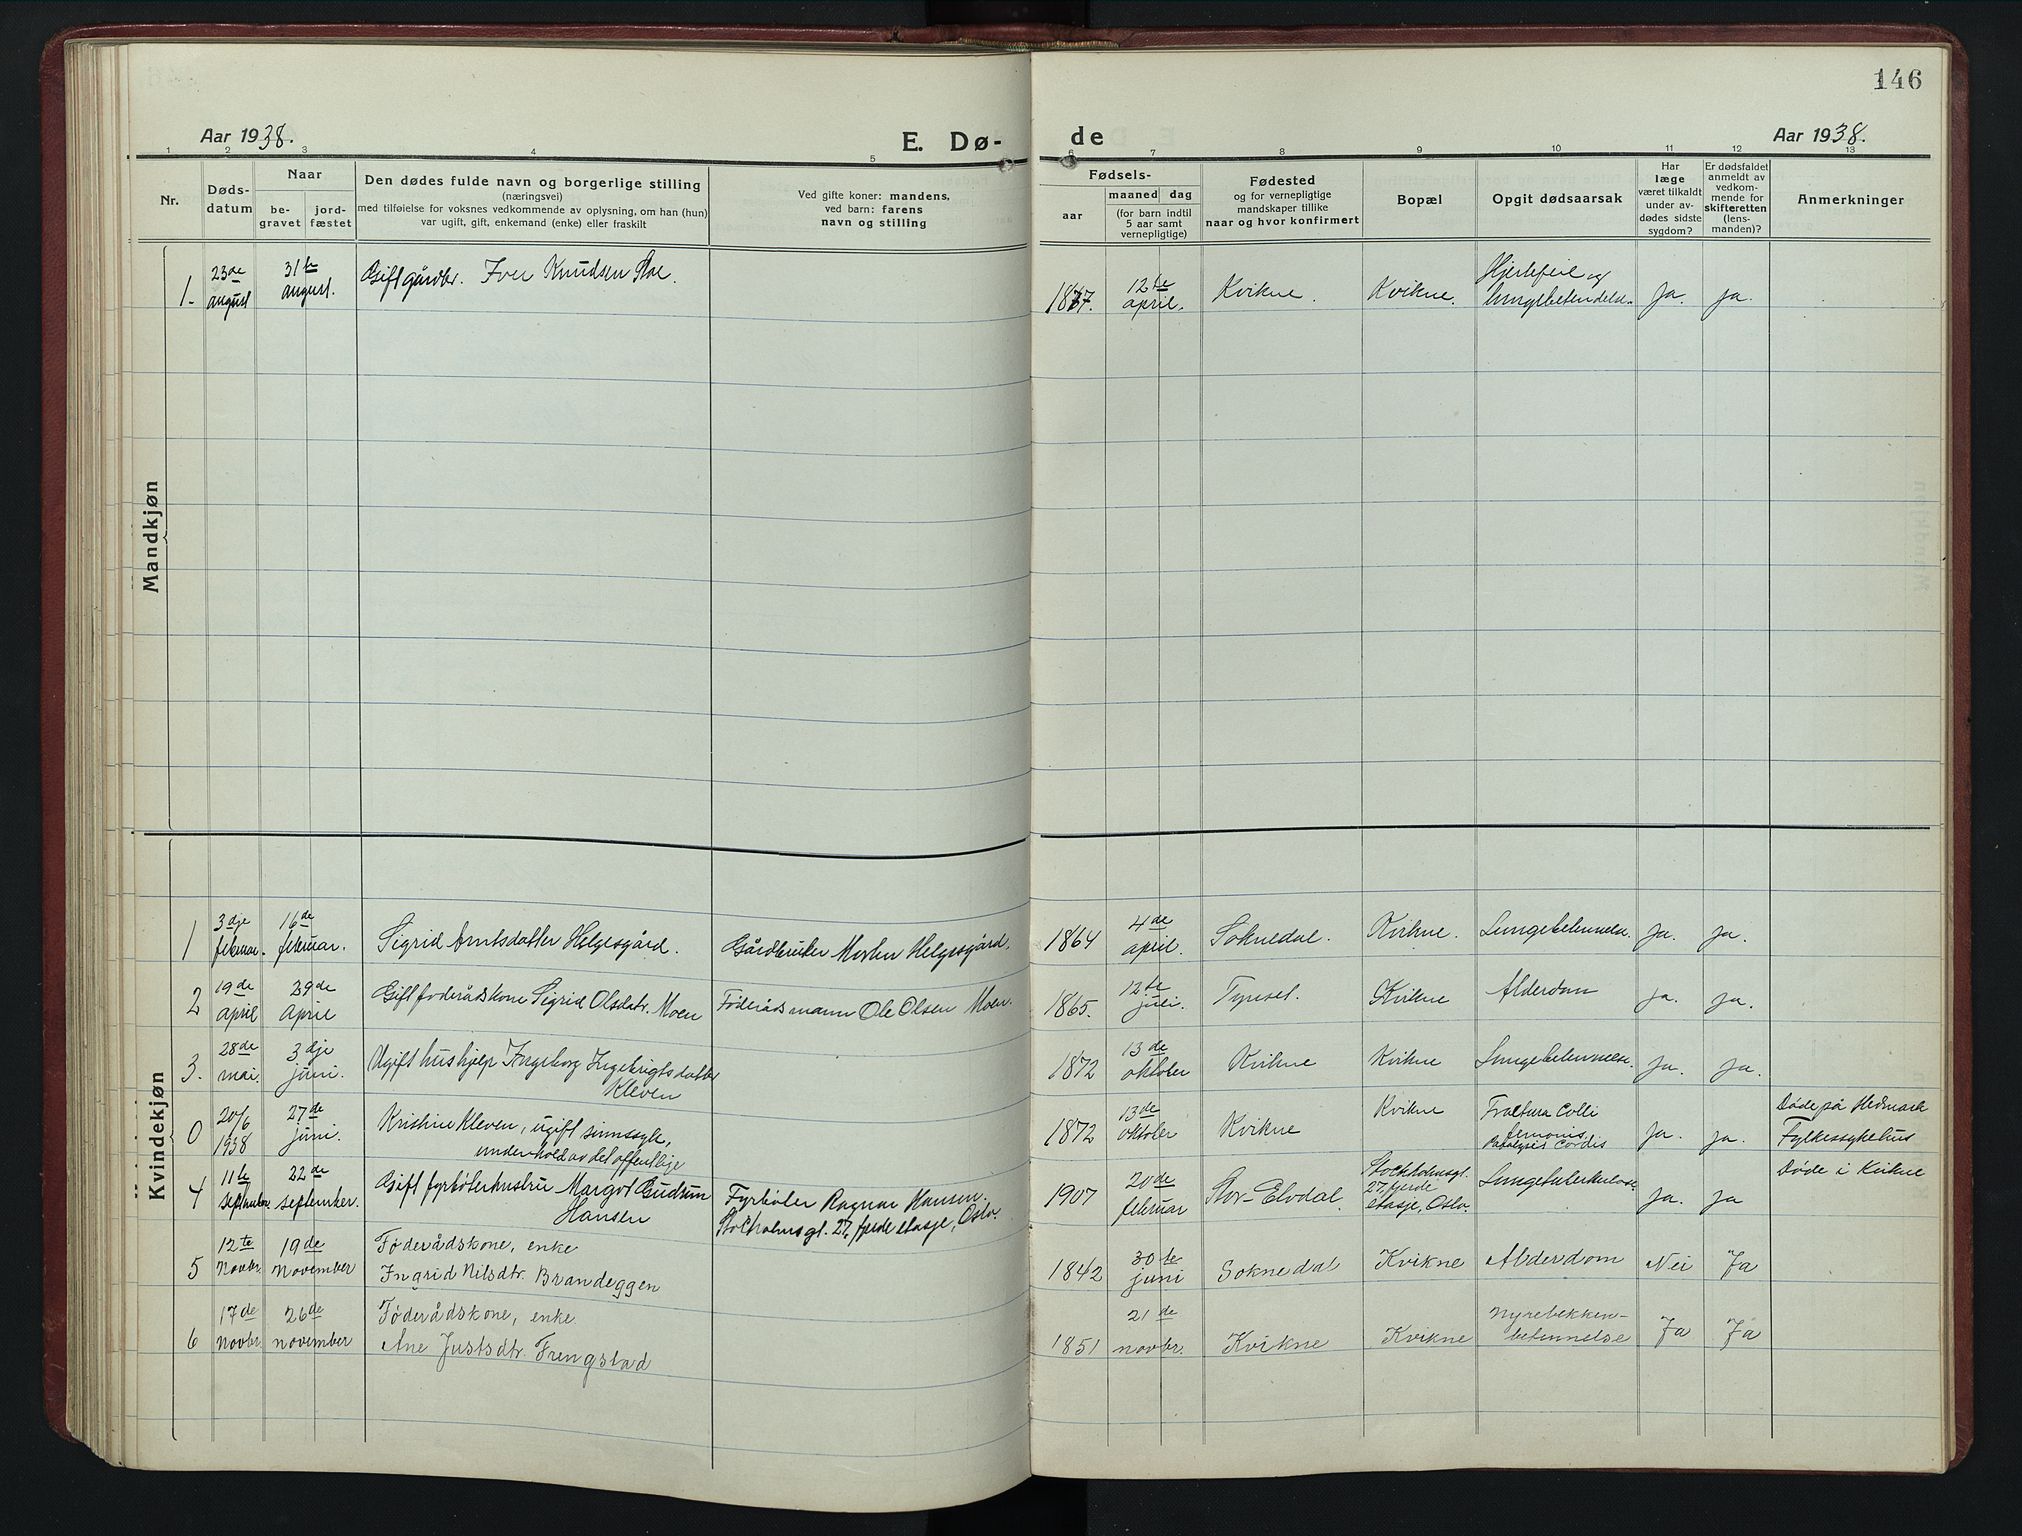 146
Aar 1938.
E. Dø-
de
Aar 1938.
1 2 3 4 5 6 7 8 9 10 11 12 13
Nr.
Døds-
datum
Naar
be-
gravet
jord-
fæstet
Den dødes fulde navn og borgerlige stilling
(næringsvei)
med tilføielse for voksnes vedkommende av oplysning, om han (hun)
var ugift, gift, enkemand (enke) eller fraskilt
Ved gifte koner: mandens,
ved barn: farens
navn og stilling
Fødsels-
aar
maaned dag
(for barn indtil
5 aar samt
vernepligtige)
Fødested
og for vernepligtige
mandskaper tillike
naar og hvor konfirmert
Bopæl
Opgit dødsaarsak
Har
læge
været tilkaldt
under av-
dødes sidste
sygdom?
Er dødsfaldet
anmeldt av
vedkom-
mende for
skifteretten
(lens-
manden)?
Anmerkninger
Mandkjøn
1.
23de
august
31te
august.
Gift gårdbr. Iver Knudsen
1877.
12te
april.
Kvikne.
Kvikne.
Hjertefeil og
lungebetendelse.
Ja.
ja.
Kvindekjøn
1
3dje
februar.
16de
februar.
Sigrid Arntsdatter Helgesgård.
Gårdbruker Morten Helgesgård.
1864
4de
april.
Soknedal.
Kvikne.
Lungebetennelse.
Ja.
Ja.
2
19de
april
29de
april
Gift føderådskone Sigrid Olsdatr. Moen
Føderådsmann Ole Olsen Moen.
1865.
12te
juli.
Tynset.
Kvikne
Alderdom
Ja.
Ja.
3.
28de
mai.
3dje
juni.
Ugift hushjelp Ingeborg Ingebrigtsdatter
Kleven
1872
13de
oktober
Kvikne
Kvikne
Lungebetennelse.
Ja.
Ja.
0
20/6
1938
27de
juni.
Kristine Kleven, ugift sinnssyk,
underhold av det offentlige
1872
13de
oktober
Kvikne
Kvikne
Fractura Colli
femoris
Paralysis Cordis
Ja.
Ja.
Døde på Hedmark
Fylkessykehus
4
11te
september.
22de
september.
Gift fyrbøterhustru Margot Gudrun
Hansen
Fyrbøter Ragnar Hansen.
Stockholmsgt. 27, fjerde etasje, Oslo.
1907
20de
februar
Stor-Elvdal.
Stockholmsgt.
27, fjerde
etasje, Oslo.
Lungetuberkulose
Ja.
Ja
Døde i Kvikne
5
12te
Novbr.
19de
November
Føderådskone, enke
Ingrid Nilsdtr. Brandeggen
1842
30te
juni
Soknedal
Kvikne
Alderdom
Nei
Ja
6
17de
Novbr.
26de
november
Føderådskone, enke
Ane Justsdtr. Frengstad
1851
21de
novbr.
Kvikne
Kvikne
Nyrebekken-
betennelse
Ja
Ja